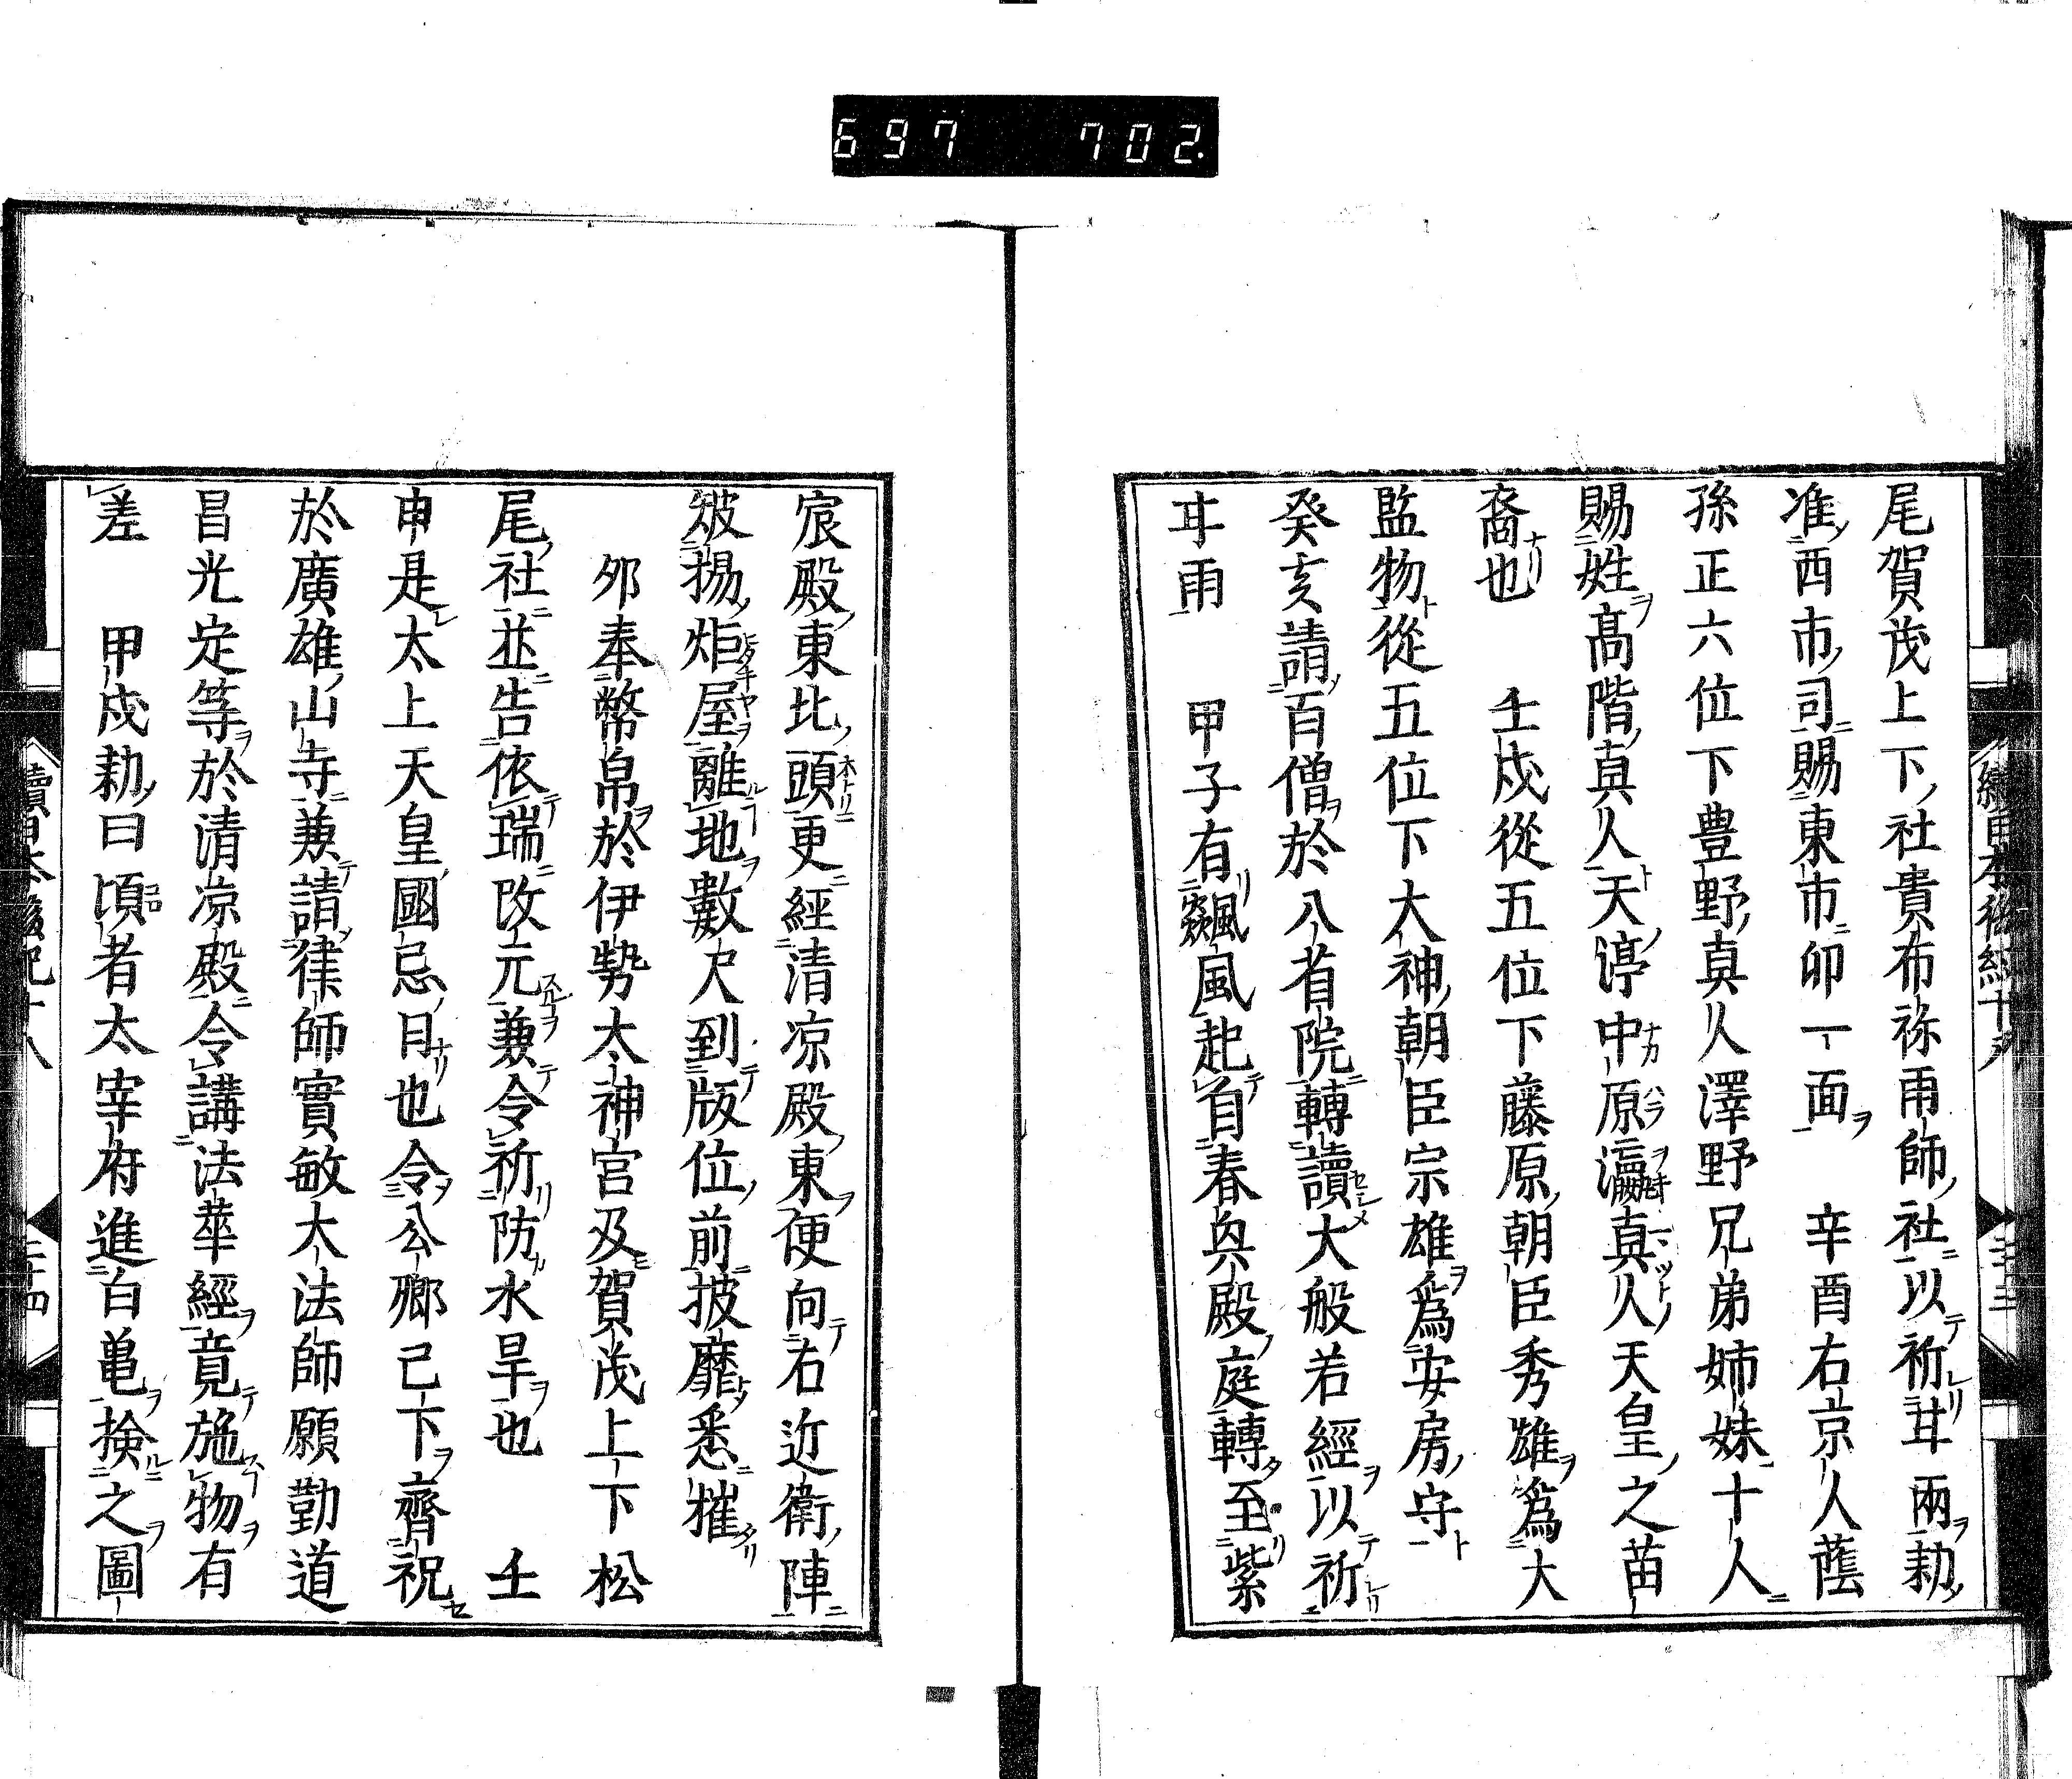 697 702.
尾賀茂上下社貴布祢雨師社以祈甘雨勅
准西市司賜東市印一面　辛酉右京人蔭
孫正六位下豊野真人澤野兄弟姉妹十人
賜姓髙階真人天渟中原瀛真人天皇之苗
裔也　壬戌從五位下藤原朝臣秀雄為大
監物從五位下大神朝臣宗雄為安房守
癸亥請百僧於八省院轉讀大般若經以祈
甘雨　甲子有飈風起自春興殿庭轉至紫
宸殿東北頭更經清涼殿東便向右近衛陣
皴揚炬屋離地數尺到版位前披靡悉摧
夘奉幣帛於伊勢大神宮及賀茂上下松
尾社並告依瑞改元兼令祈防水旱也　壬
申是太上天皇國忌日也令公卿已下齊祝
於廣雄山寺兼請律師實敏大法師願勤道
昌光定等於清凉殿令講法華經竟施物有
差　甲戌勅曰頃者太宰府進白亀檢之圖